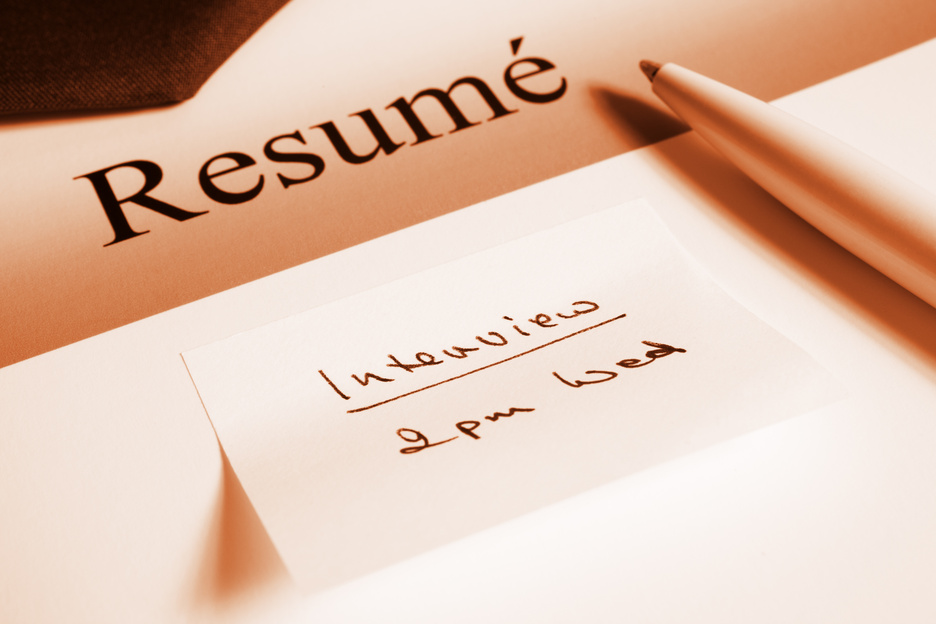 Resumé
Interview
2pm Wed